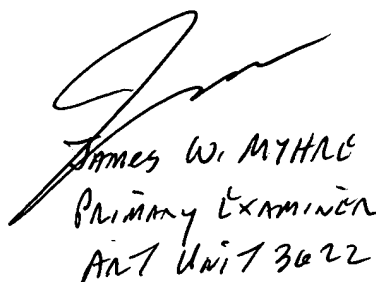 JAMES W. MYHRE
PRIMARY EXAMINER
ART UNIT 3622